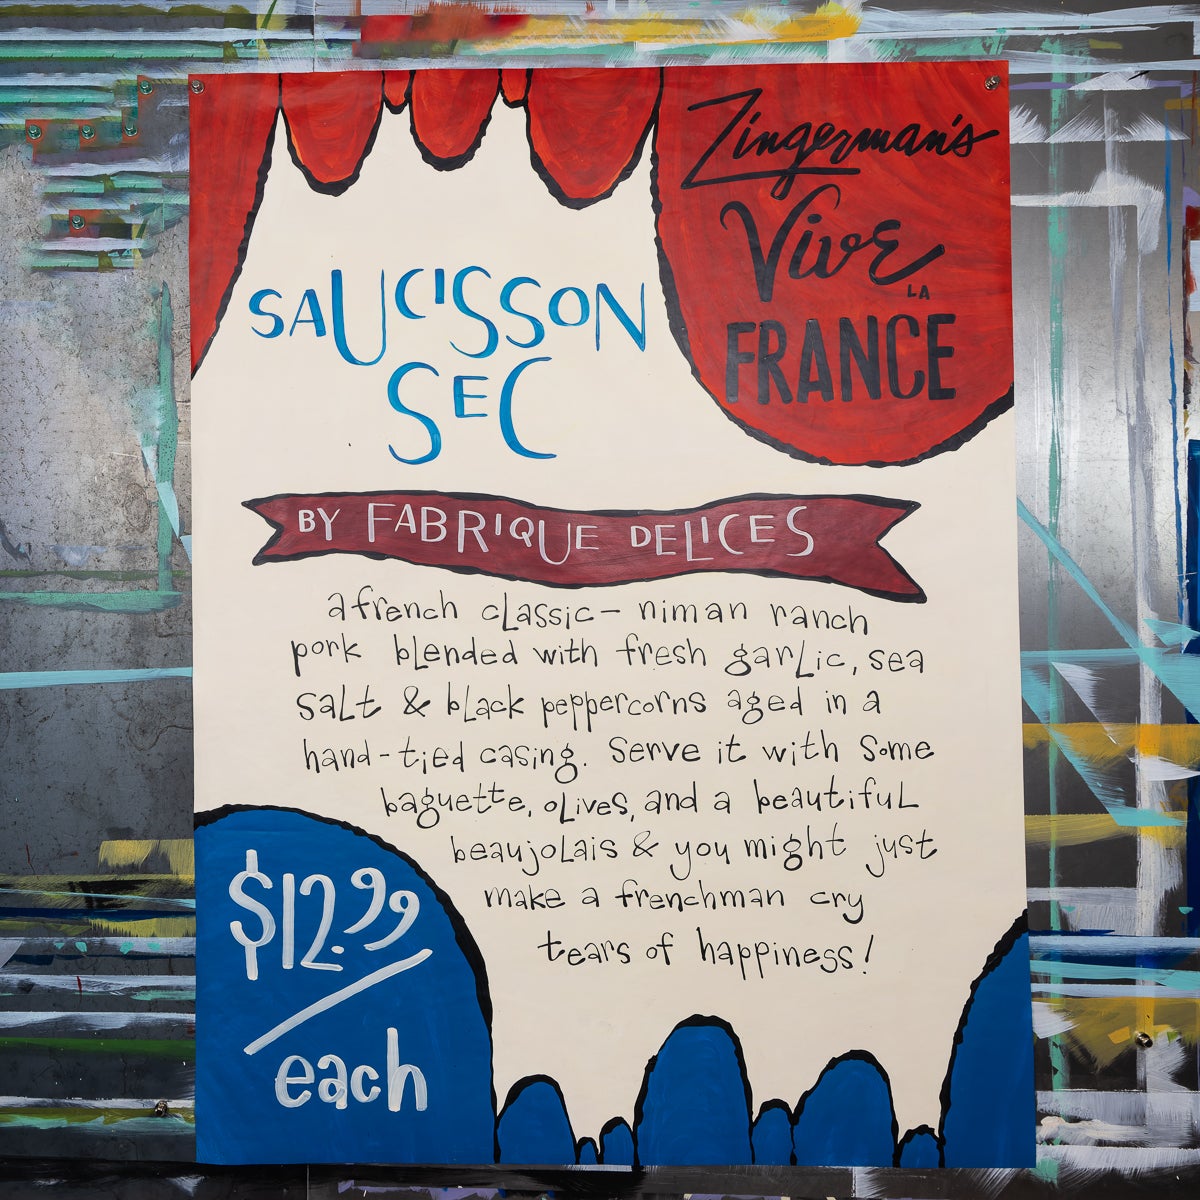 Zingerman's
Vive
LA
FRANCE
SAUCISSON
SEC
BY FABRIQUE DELICES
a french classic — niman ranch
pork blended with fresh garlic, sea
salt & black peppercorns aged in a
hand-tied casing. serve it with some
baguette, olives, and a beautiful
beaujolais & you might just
make a frenchman cry
tears of happiness!
$12.99/
each